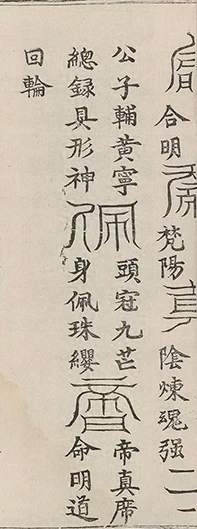 合明 梵陽 陰煉魂强
公子輔黃寧 頭冠九芒 帝真席
總録具形神 身佩珠纓 命明道
回輪